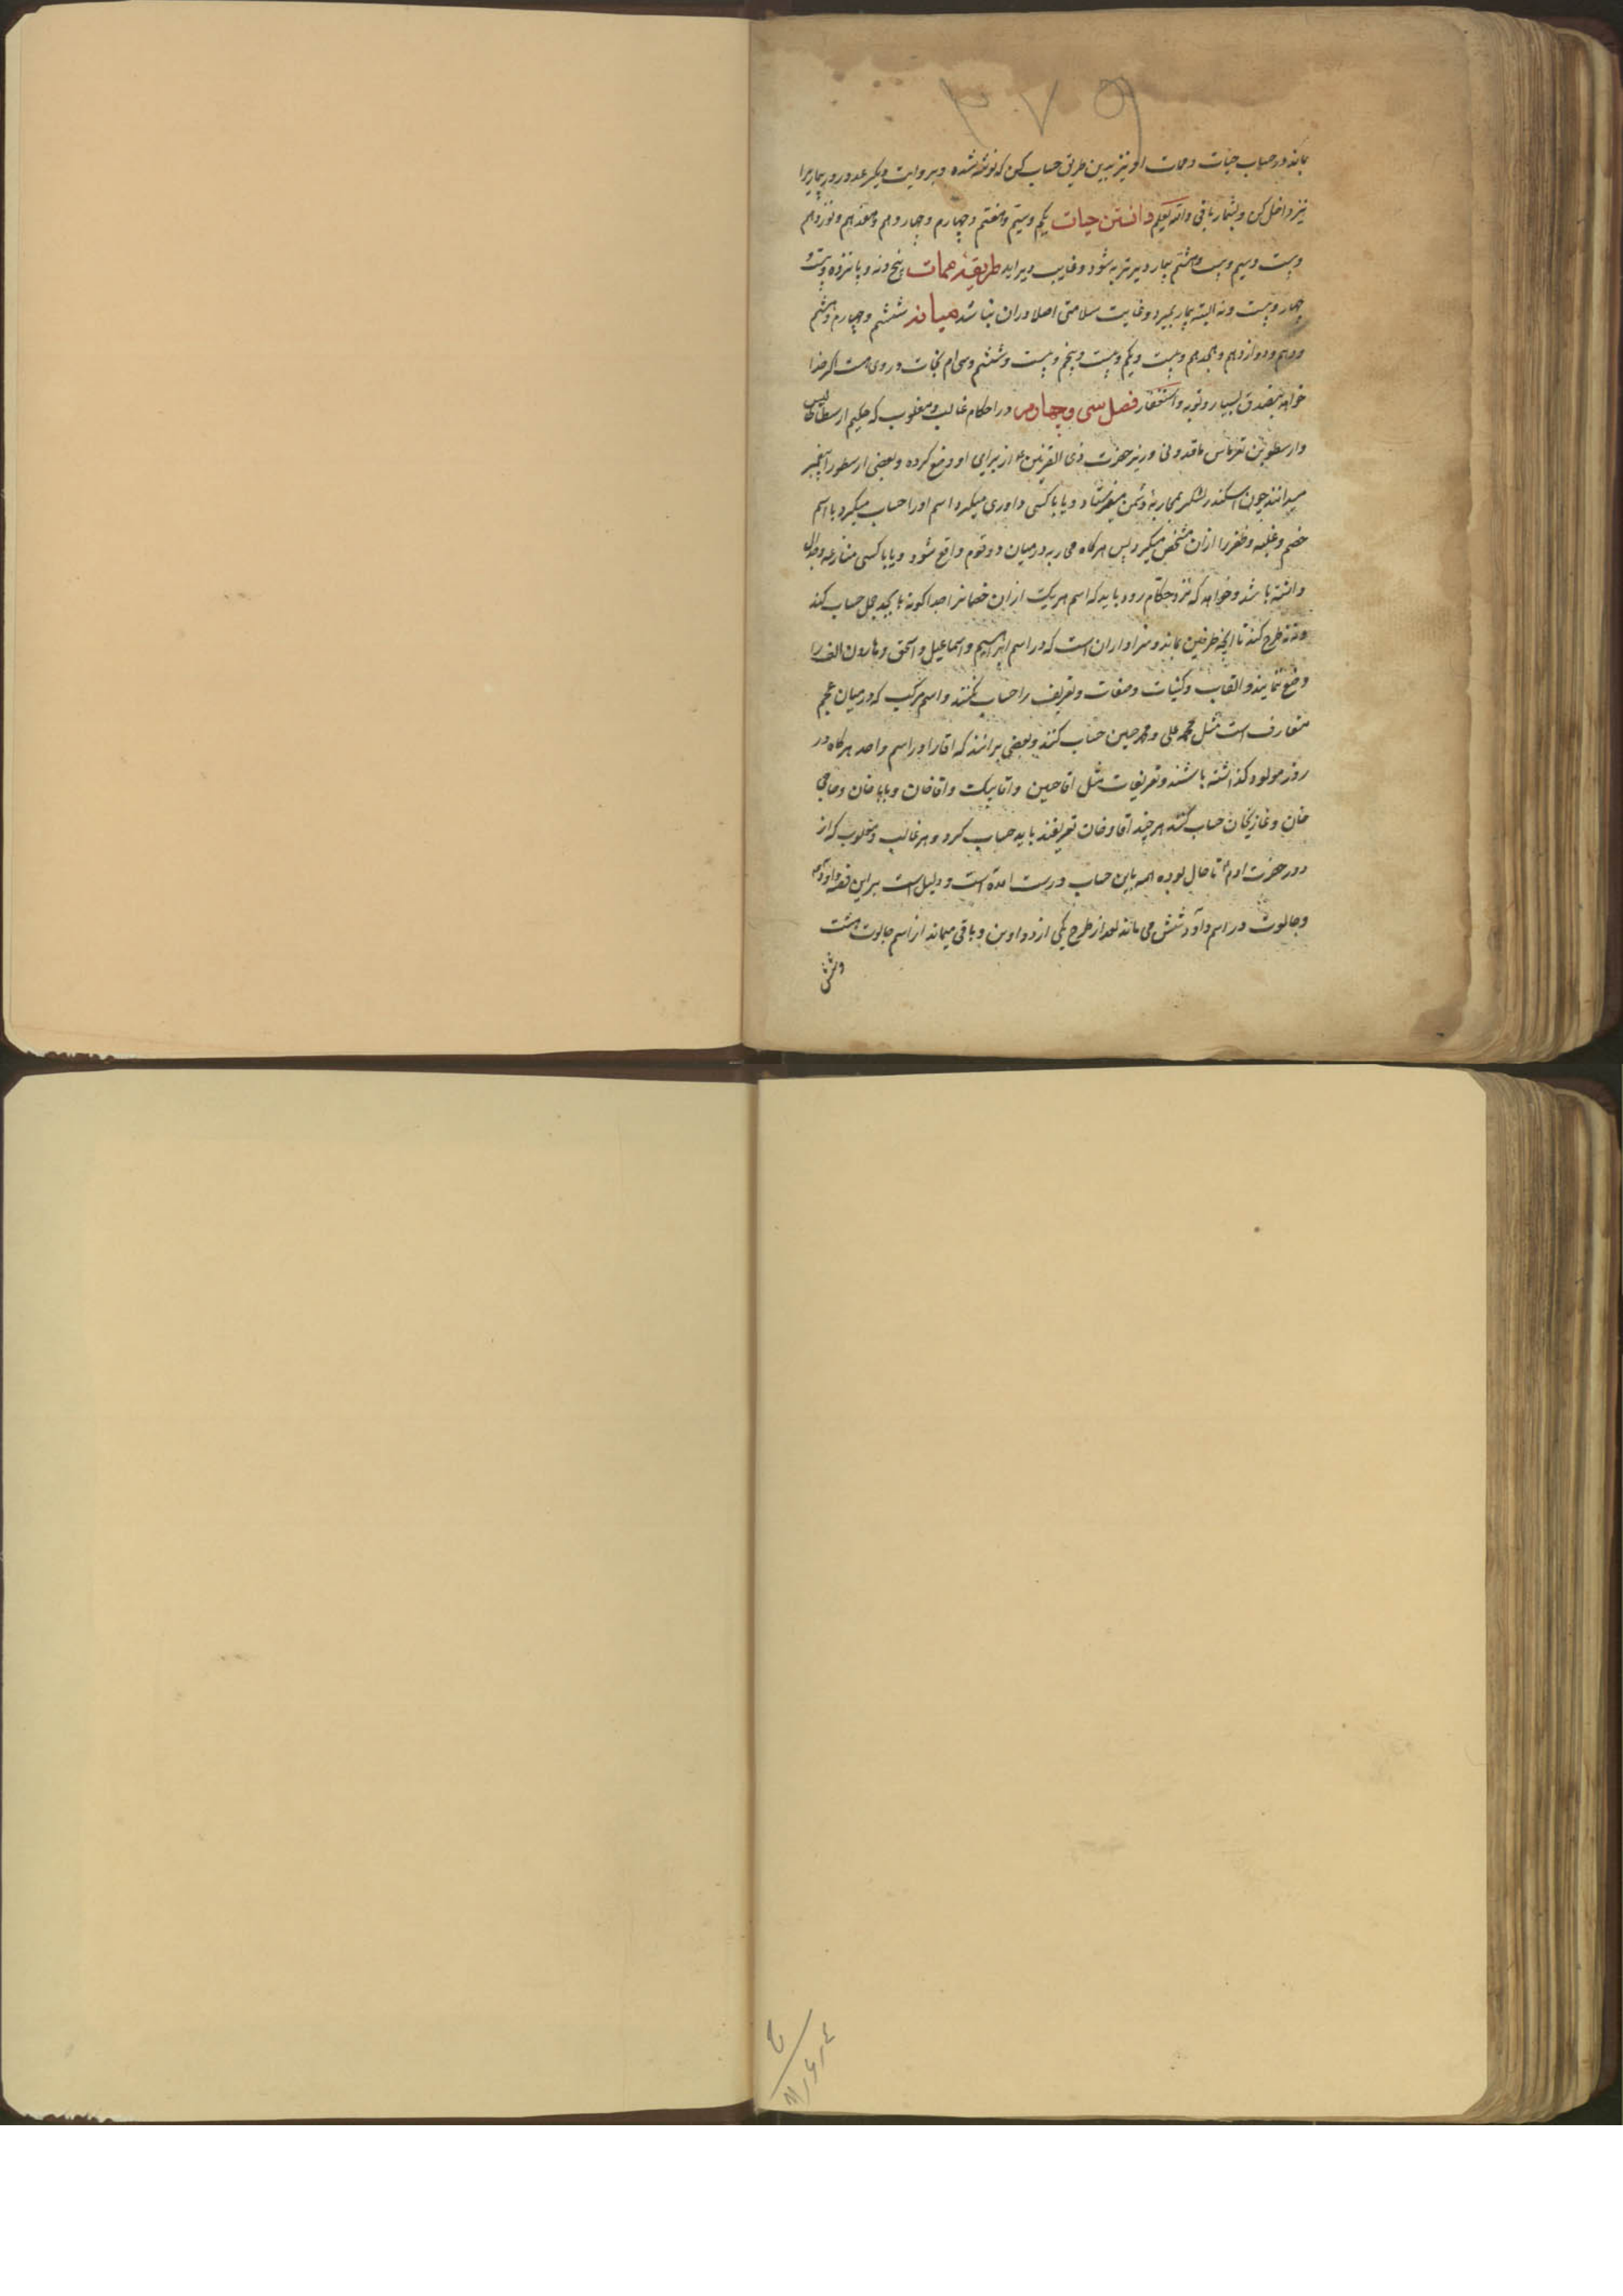 ۳۰۷۵۹
بماند در حساب حیات و ممات او نیز بدین طریق حساب کن که نوشته شده و بروایت دیگر عدد روز بیمار را
نیز داخل کن و بشمار باقی والله یعلم دانستن حیات یکم و سیم و هفتم و چهارم و چهاردهم و هفدهم و نوزدهم
و بیست و سیم و بیست و هشتم بیمار دیرتر به شود و غایب دیر اید طریقه ممات پنج و نه و پانزده و بیست و
چهار و بیست و نه البته بیمار بمیرد و غایت سلامتی اصلا دران نباشد میانه ششم و چهارم و هشتم
و دهم و دوازدهم و هجدهم و بیست و یکم و بیست و پنجم و بیست و ششم و سی ام نجات در وی هست اگر خدا
خواهد بتصدق بسیار و توبه و استغفار فصل سی و چهارم در احکام غالب و مغلوب که حکیم ارسطاطالیس
وارسطو بن ماقدونی وزیر حضرت ذی القرنین از برای او وضع کرده و بعضی ارسطو را پیغمبر
میدانند چون اسکندر لشکر بمحاربه دشمن میفرستاد و یا با کسی داوری میکرد اسم او را حساب میکرد با اسم
خصم و غلبه و ظفر را ازان مشخص میکرد پس هرکاه محاربه در میان دو قوم واقع شود و یا با کسی منازعه و جدال
داشته باشد و خواهد که نزد حکام رود باید که اسم هر یک از ان خصمانرا جداکونه بابجد جمل حساب کند
و نه نه طرح کند تا انچه طرفین بماند و سزاوار ان است که در اسم ابراهیم و اسماعیل و اسحق و هارون الف را
وضع نمایند و القاب و کنیات و صفات و تعریف را حساب نکنند و اسم مرکب که در میان عجم
متعارف است مثل محمد علی و محمد حسین حساب کنند و بعضی برانند که اقا را در اسم واحد هرکاه در
روز مولود کذاشته باشند و تعریفات مثل اقا حسین و اقا بیک و اقا خان و بابا خان و حاجی
خان و غازیخان حساب کنند هر چند اقا و خان تعریفند باید حساب کرد و هر غالب و مغلوب که از
دور حضرت ادم تا حال بوده همه باین حساب درست امده است و دلیل است براین قصه داود
و جالوت در اسم داود شش می ماند بعد از طرح یکی از دو واوین و باقی میماند از اسم جالوت هشت